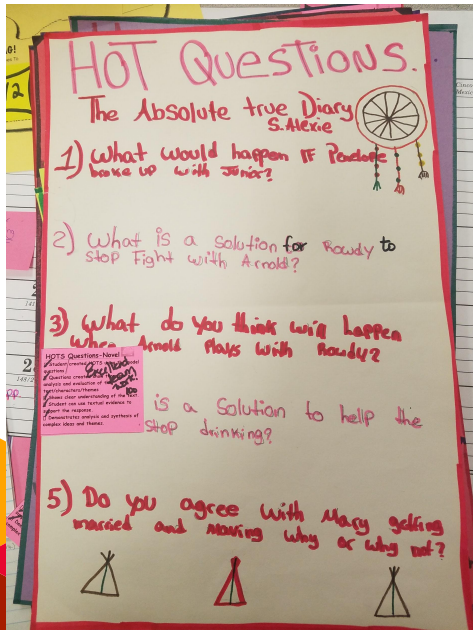 HOT Questions.
The Absolute true Diary
S. Alexie
1) What would happen IF Penelope
broke up with Junior?
2) What is a solution for Rowdy to
stop Fight with Arnold?
3) What do you think will happen
when Arnold Plays with Rowdy?
HOTS Questions-Novel
Student created HOTS model
questions
Questions created
analysis and evaluation of
text/characters/themes
Shows clear understanding of the text
Student can use textual evidence to
support the response.
Demonstrates analysis and synthesis of
complex ideas and themes.
Excellent
team
work.
is a Solution to hellp the
stop drinking?
5) Do you agree with Mary getting
married and Moving Why or Why not?